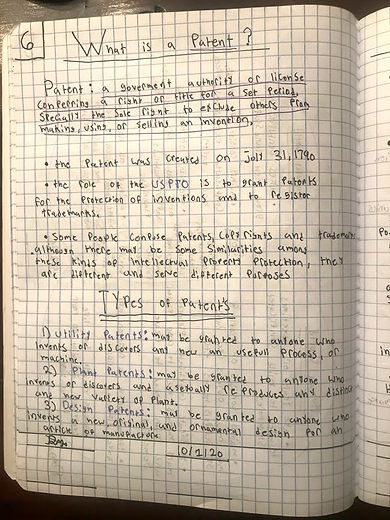 6
What is a Patent?
Patent: a goverment authority or license
conferring a right or title for a set period,
specially the sole right to exclude others from
making, using, or selling an invention.
• the Patent was created on July 31, 1790
• the role of the USPTO is to grant Patents
for the protection of inventions and to register
trademarks.
• Some People confuse Patents, copyrights and trademarks
, although there may be some similarities among
these kinds of intellectual property protection, they
are different and serve different purposes
Types of Patent's
1) Utility Patents: may be granted to anyone who
invents or discovers any new an usefull process, or
machine.
2) Plant Patents: may be granted to anyone who
invents or discovers and asexually reproduces any distinct
and new variety of plant.
3) Design Patents: may be granted to anyone who
invents a new, original, and ornamental design for an
article of manufacture
10/1/20